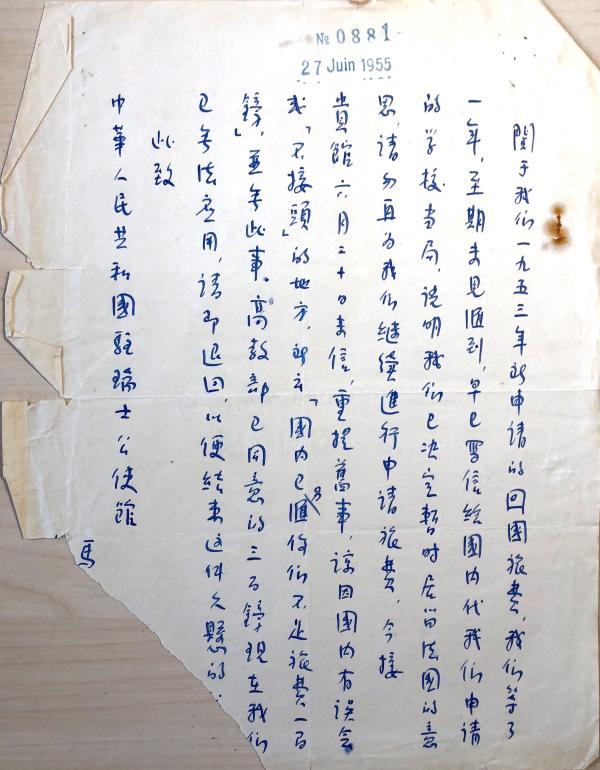 № 0881
27 Juin 1955
關于我们一九五三年所申請的回國旅費，我们等了
一年，至期未見匯到，早已寫信給國内代我们申請
的学校当局，說明我们已决定暫时居留法國的意
思，請勿再为我们继續進行申請旅費，今接
貴館六月二十日来信，重提舊事，諒因國内有误会
或「不接頭」的地方，所云「國内已匯你们不足旅費一百
鎊」，並无此事，高教部已同意的三百鎊現在我们
已无法应用，請即退回，以便結束这件久懸的
此致
中華人民共和國駐瑞士公使館
馬